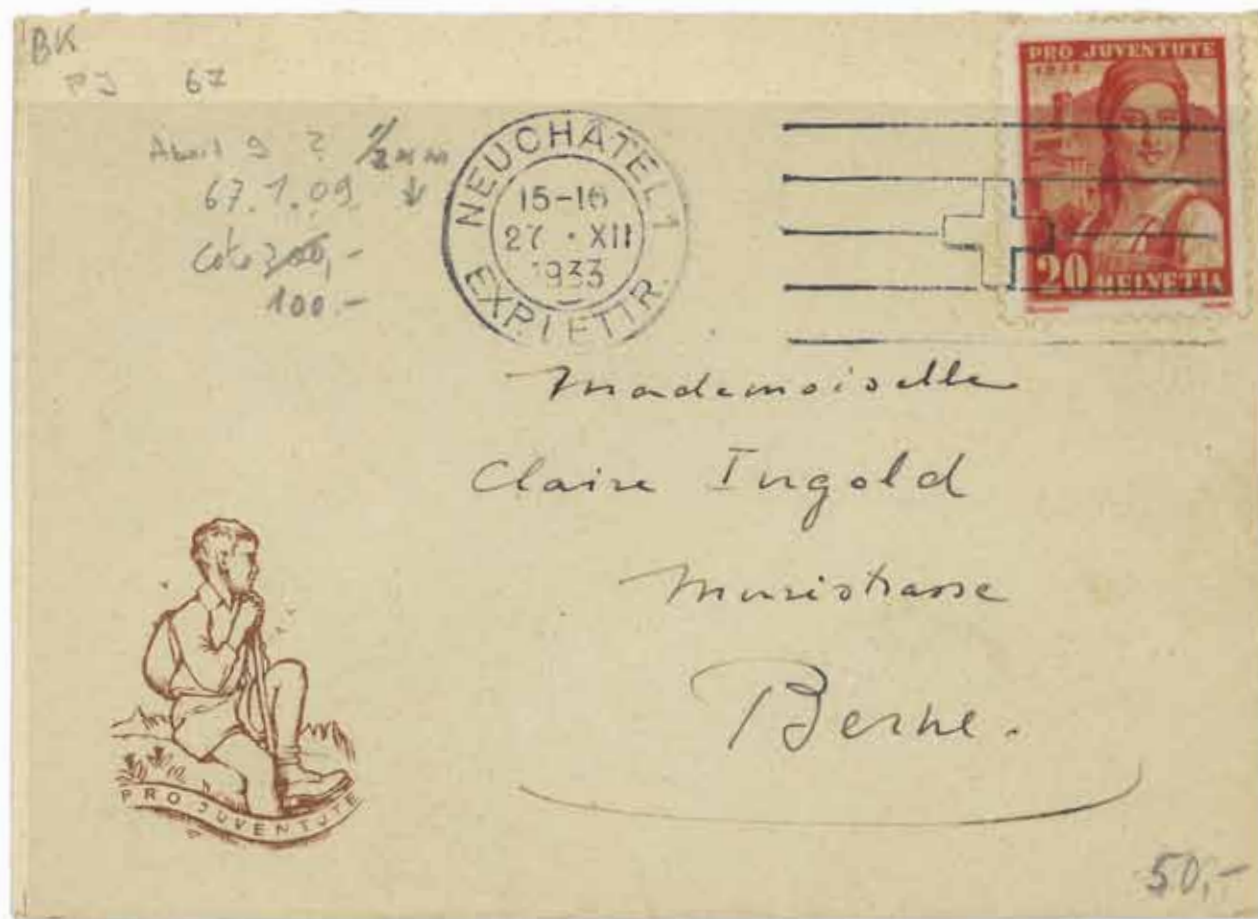 BK
PJ 67
67.1.09
Cote 200,-
100.-
NEUCHATEL 1
15-16
27 · XII
1933
EXP. LETTR.
PRO JUVENTUTE
1933
20 HELVETIA
Mademoiselle
Claire Ingold
Muristrasse
Berne.
PRO JUVENTUTE
50,-